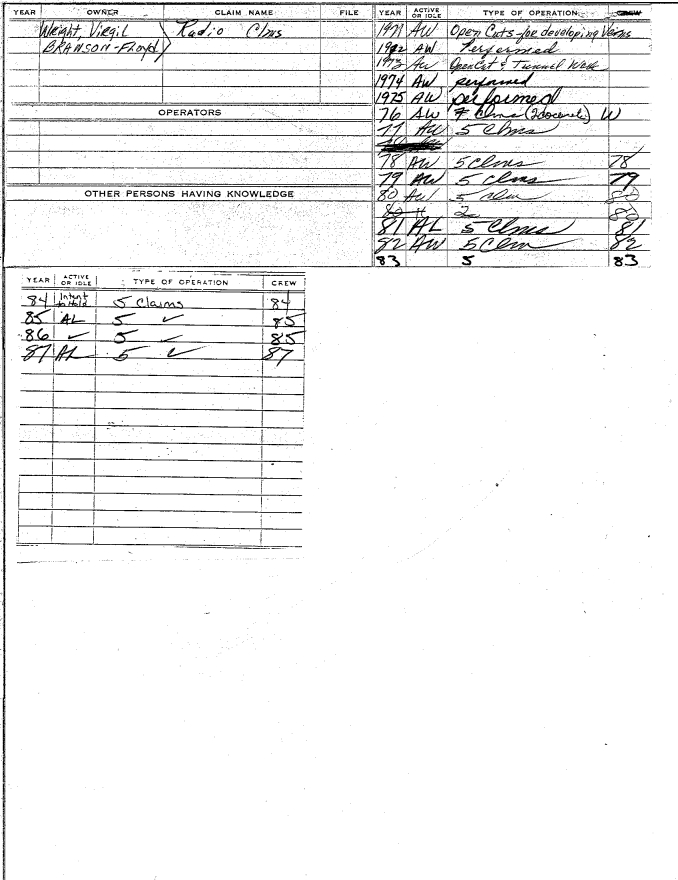 YEAR OWNER CLAIM NAME FILE
Wright, Virgil Radio Clms
BRANSON-Floyd
OPERATORS
OTHER PERSONS HAVING KNOWLEDGE
YEAR ACTIVE OR IDLE TYPE OF OPERATION CREW
1971 AW Open Cuts for developing Veins
1972 AW Performed
1973 AW Open Cut & Tunnel Work
1974 AW performed
1975 AW performed
76 AW Clms W
77 AW 5 Clms
78 AW 5 clms 78
79 AW 5 clms 79
80 AW 5 clm 80
80 80
81 AL 5 Clms 81
82 AW 5 Clm 82
83 5 83
YEAR ACTIVE OR IDLE TYPE OF OPERATION CREW
84 Intent to Hold 5 Claims 84
85 AL 5 ✓ 85
86 ✓ 5 ✓ 85
87 AL 5 ✓ 87